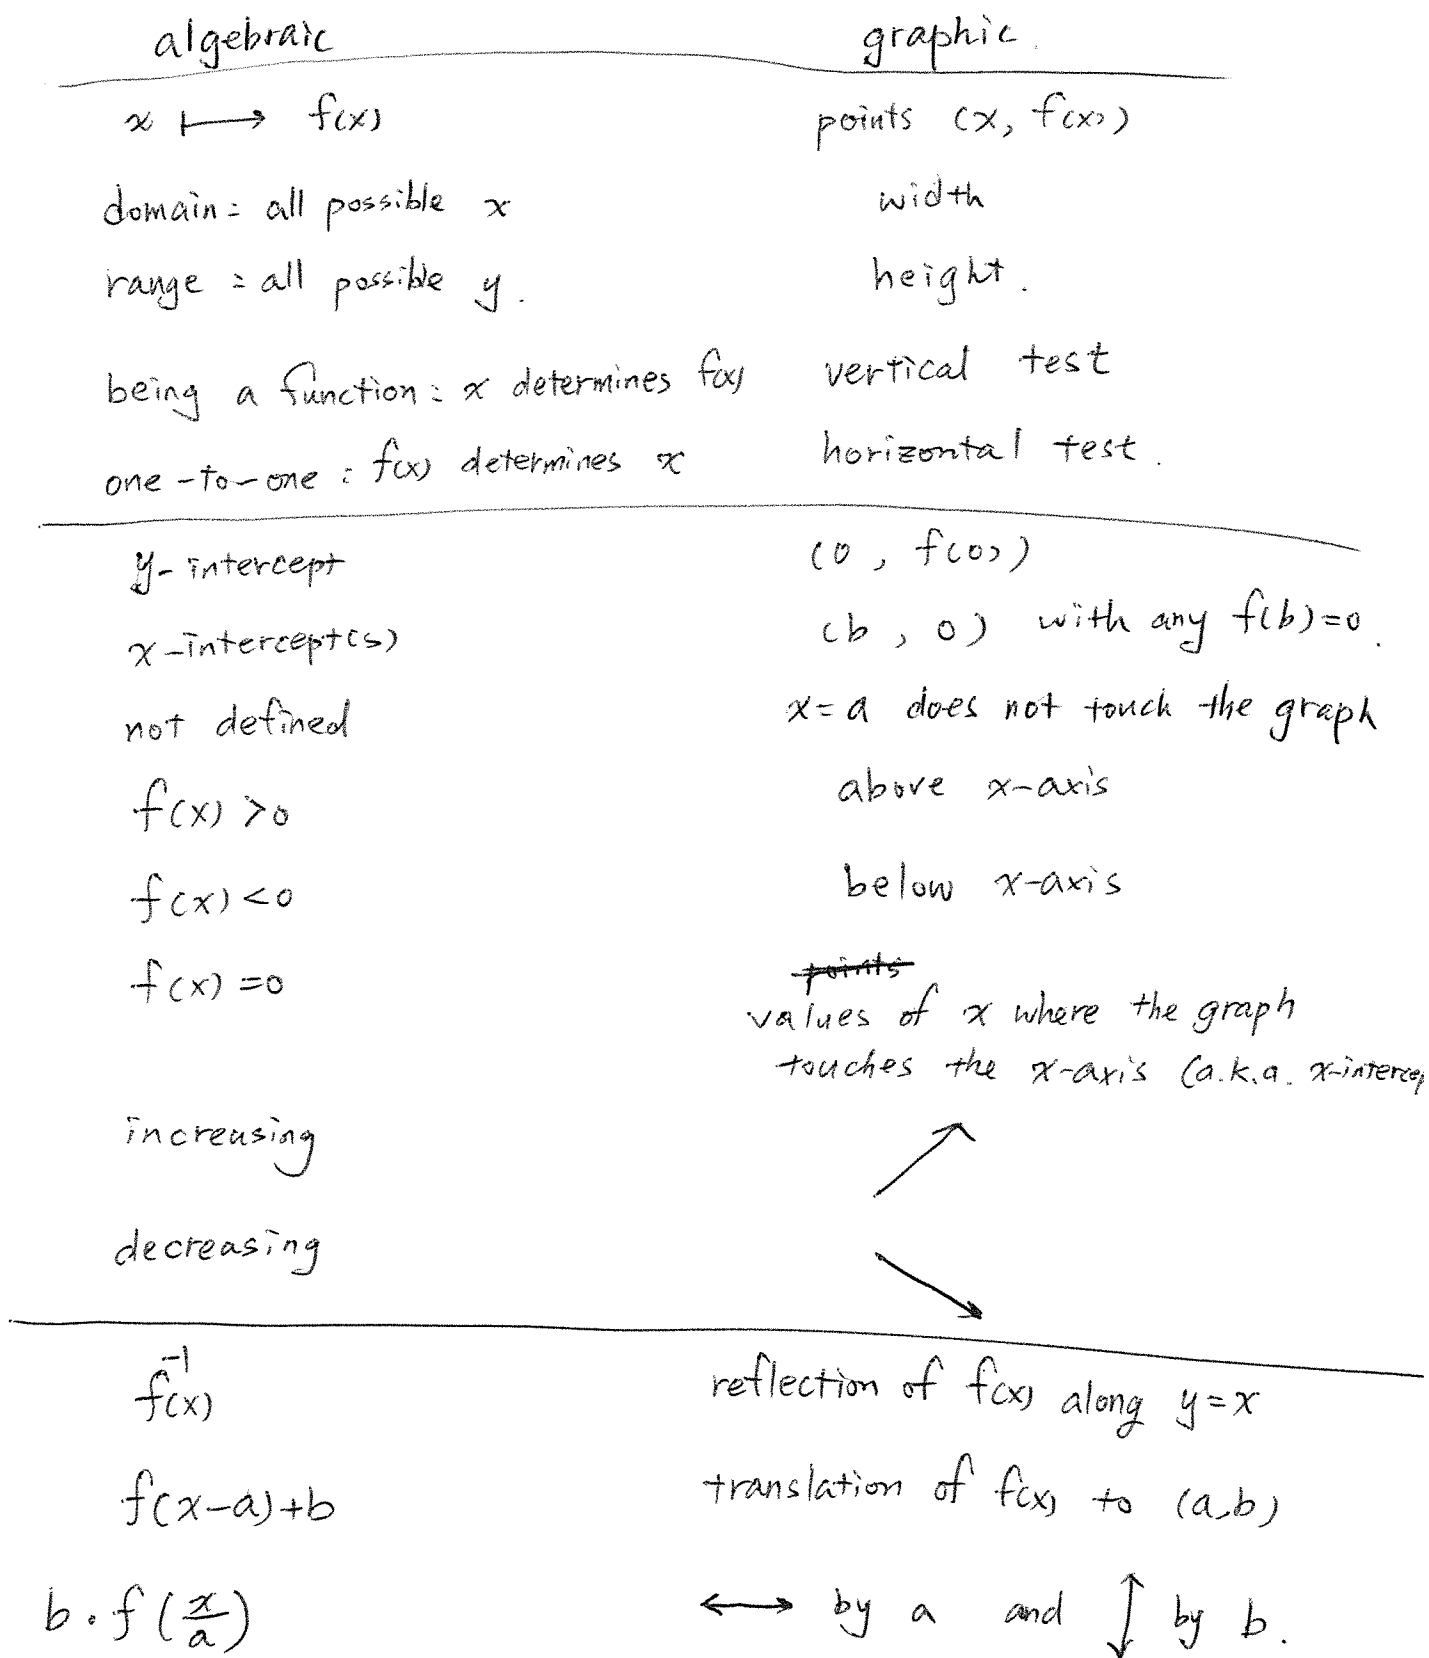 algebraic graphic.
x ⟼ f(x) points (x, f(x))
domain: all possible x width
range: all possible y. height.
being a function: x determines f(x) vertical test
one-to-one: f(x) determines x horizontal test.
y-intercept (0, f(0))
x-intercept(s) (b, 0) with any f(b)=0.
not defined x=a does not touch the graph
f(x)>0 above x-axis
f(x)<0 below x-axis
f(x)=0 points
values of x where the graph
touches the x-axis (a.k.a. x-intercep
increasing ↗
decreasing ↘
f⁻¹(x) reflection of f(x) along y=x
f(x-a)+b translation of f(x) to (a,b)
b·f(x/a) ↔ by a and ↕ by b.